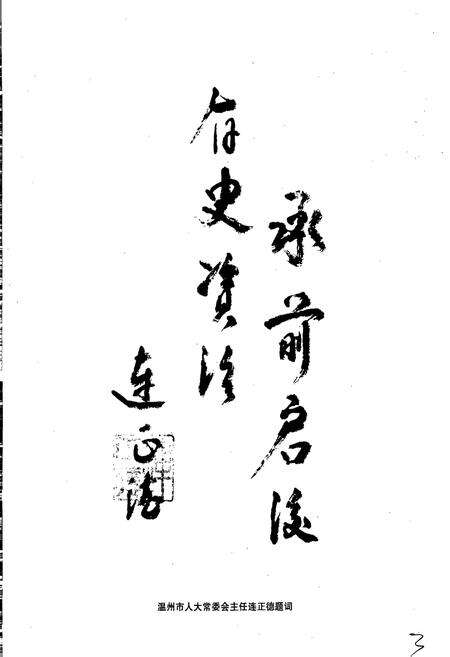 承前启后
存史资治
连正德
温州市人大常委会主任连正德题词
3